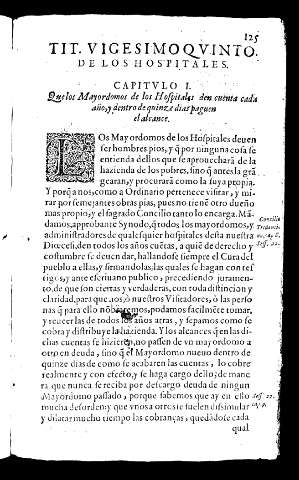 125
TIT. VIGESIMOQVINTO.
DE LOS HOSPITALES.
CAPITVLO I.
Que los Mayordomos de los Hospitales den cuenta cada
año, y dentro de quinze dias paguen
el alcance.
LOs Mayordomos de los Hospitales deuen
ser hombres pios, y q̃ por ninguna cosa se
entienda dellos que se aprouecharã de la
hazienda de los pobres, sino q̃ antes la grã
gearan, y procurarã como la suya propia.
Y porq̃ a nos, como a Ordinario pertenece visitar, y mi-
rar por semejantes obras pias, pues no tienẽ otro dueño
mas propio, y el sagrado Concilio tanto lo encarga. Mã-
damos, approbante Synodo, q̃ todos los mayordomos, y
administradores de qualesquier hospitales desta nuestra
Diocesi, den todos los años cuẽtas, a quiẽ de derecho y
costumbre se deuen dar, hallandose siempre el Cura del
pueblo a ellas, y firmandolas: las quales se hagan con tes-
tigos, y ante escriuano publico; precediendo juramen-
to, de que son ciertas y verdaderas, con toda distincion y
claridad, para que nos, ò nuestros Visitadores, ò las perso-
nas q̃ para ello nõbraremos, podamos facilmẽte tomar,
y reueer las de todos los años atras, y sepamos como se
cobra y distribuye la hazienda. Y los alcances q̃ en las di-
chas cuentas se hizieren, no passen de vn mayordomo a
otro en deuda, sino q̃ el Mayordomo nueuo dentro de
quinze dias de como se acabaren las cuentas, lo cobre
realmente y con efecto, y se haga cargo dello; de mane
ra que nunca se reciba por descargo deuda de ningun
Mayordomo passado, porque sabemos que ay en ello
mucha desorden y que vnos a otros se suelen dissimular
y dilatar mucho tiempo las cobranças, quedãdose cada
qual
Concilio
Trident.
Sess. 22.
Sess. 22.